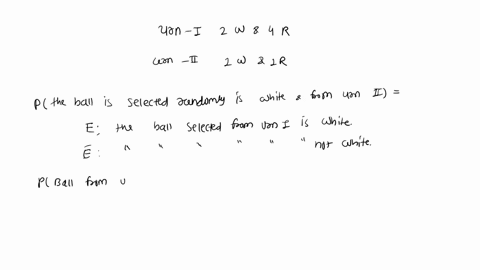 Urn-I 2 W & 4 R
Urn-II 2 W & 1R
P(the ball is selected randomly is white & from Urn II) =
E: the ball selected from Urn I is white.
Ē: " " " " " " not white.
P(Ball from U